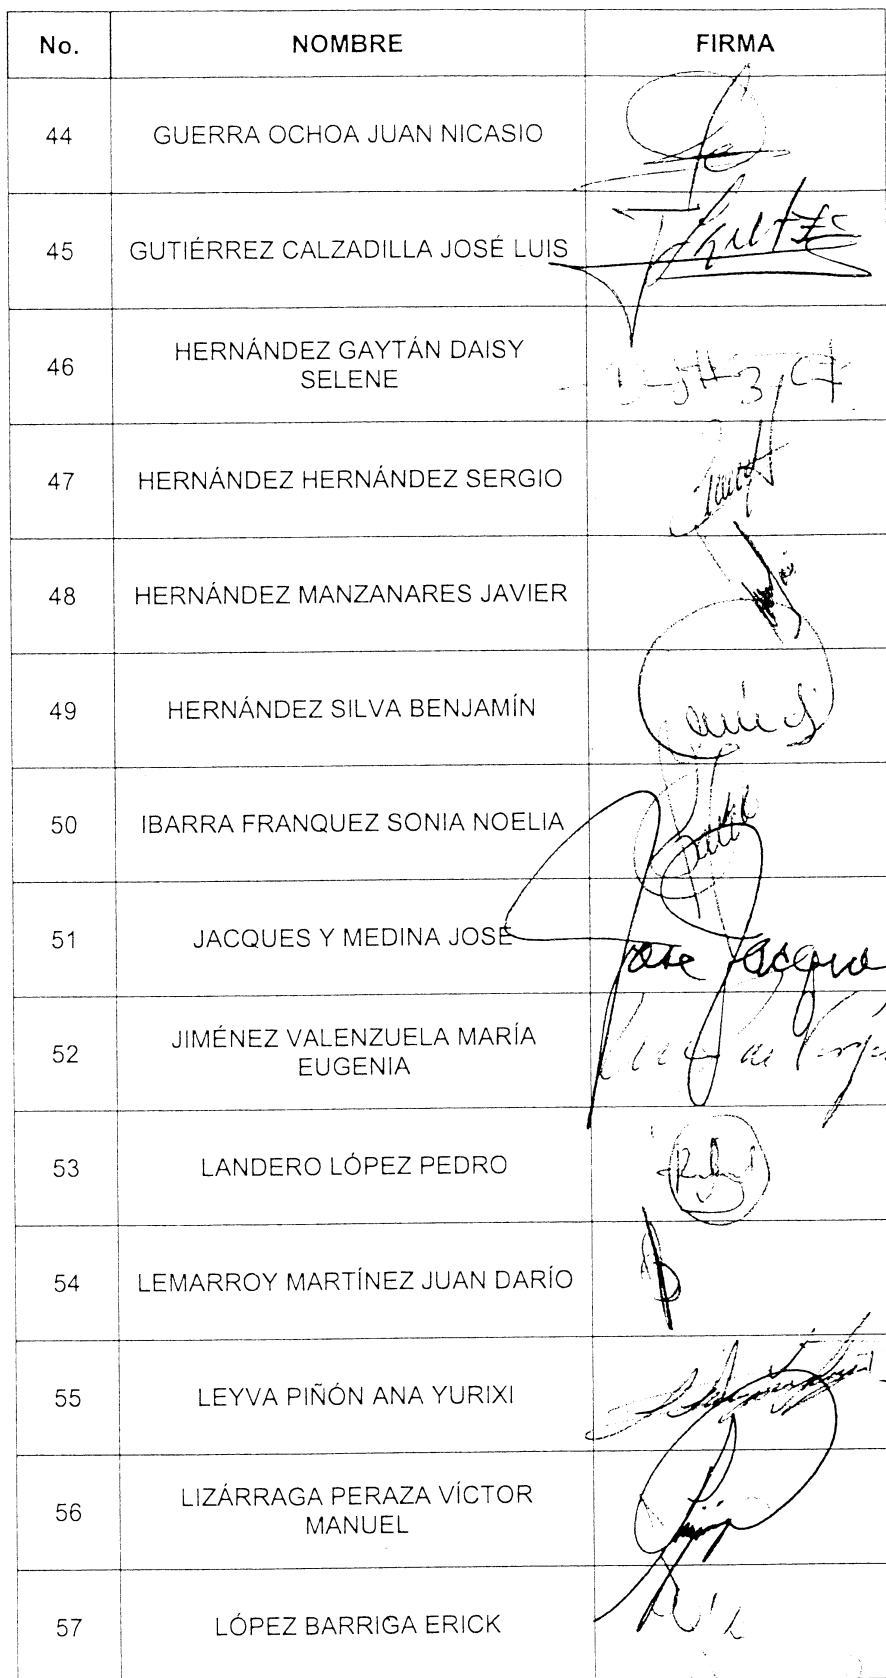 No. NOMBRE FIRMA
44 GUERRA OCHOA JUAN NICASIO
45 GUTIÉRREZ CALZADILLA JOSÉ LUIS
46 HERNÁNDEZ GAYTÁN DAISY
SELENE
47 HERNÁNDEZ HERNÁNDEZ SERGIO
48 HERNÁNDEZ MANZANARES JAVIER
49 HERNÁNDEZ SILVA BENJAMÍN
50 IBARRA FRANQUEZ SONIA NOELIA
51 JACQUES Y MEDINA JOSÉ Jose Jacques
52 JIMÉNEZ VALENZUELA MARÍA
EUGENIA
53 LANDERO LÓPEZ PEDRO
54 LEMARROY MARTÍNEZ JUAN DARÍO
55 LEYVA PIÑÓN ANA YURIXI
56 LIZÁRRAGA PERAZA VÍCTOR
MANUEL
57 LÓPEZ BARRIGA ERICK